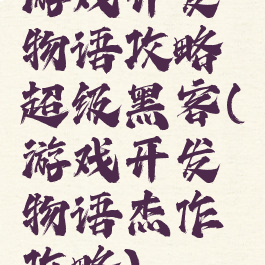 游戏开发
物语攻略
超级黑客(
游戏开发
物语杰作
攻略)